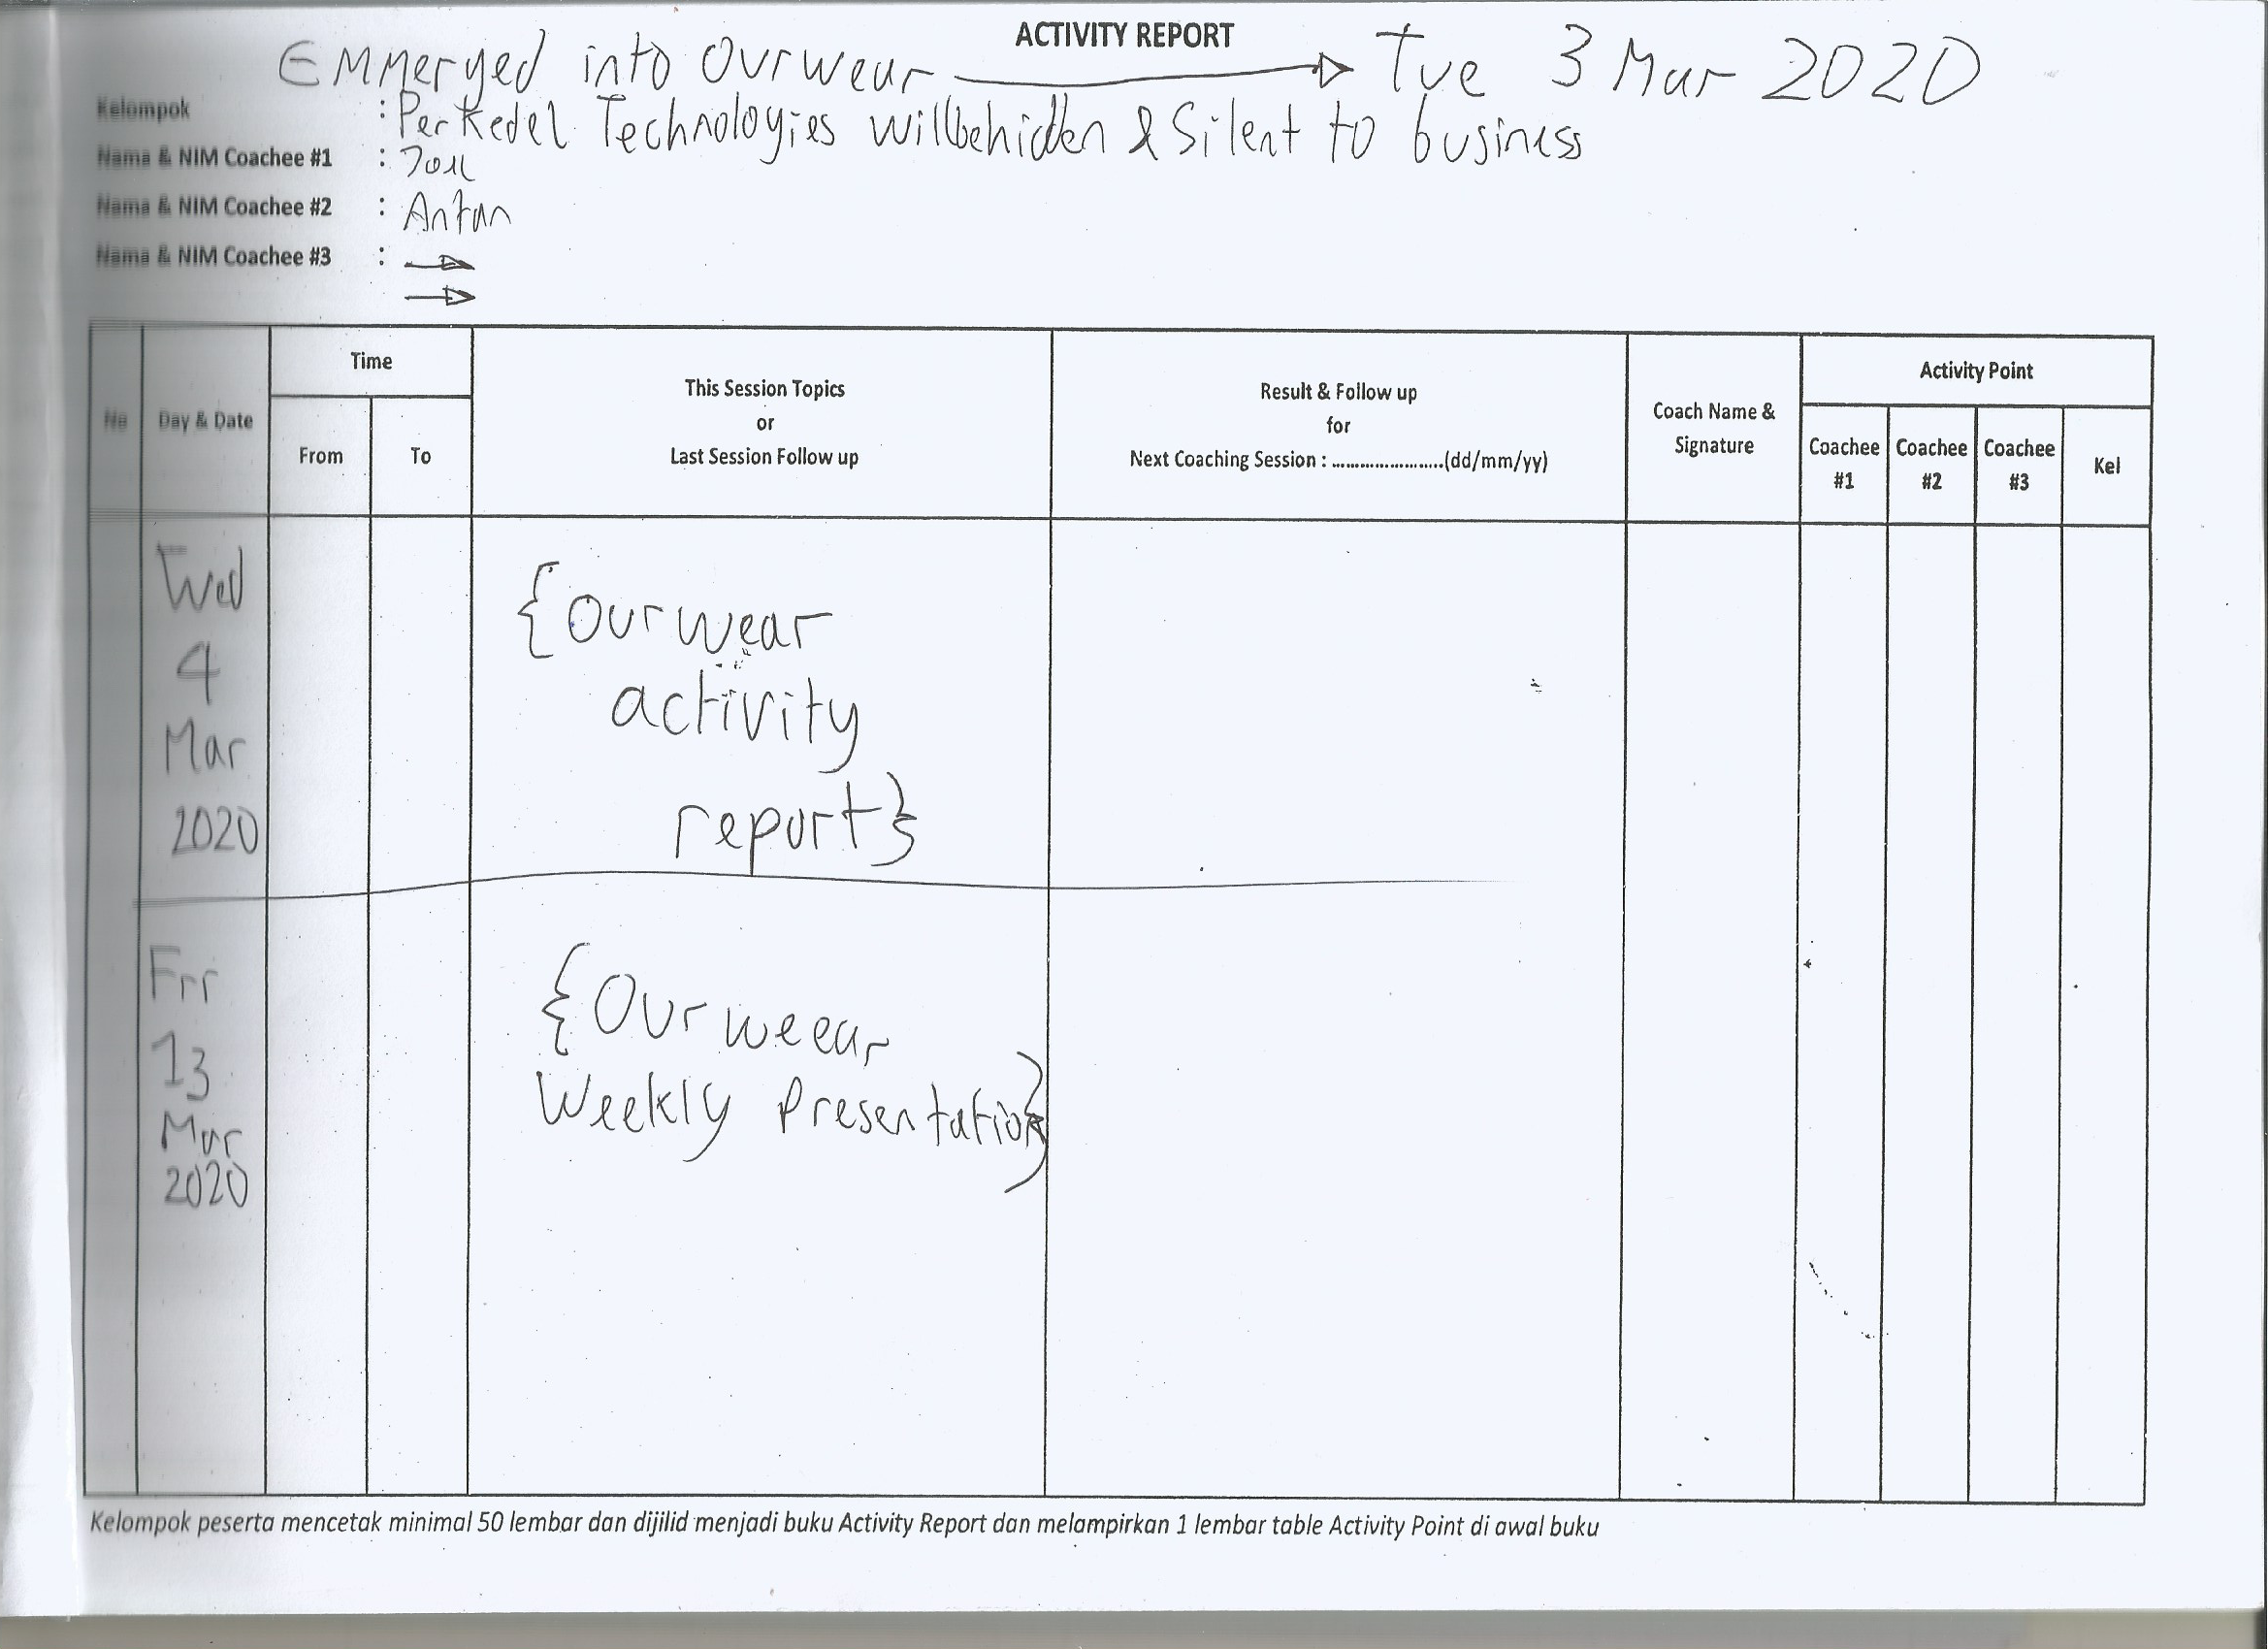 ACTIVITY REPORT
Emmerged into Ourwear → Tue 3 Mar 2020
Kelompok : Perkedel Technologies willbehidden & Silent to business
Nama & NIM Coachee #1 : Joel
Nama & NIM Coachee #2 : Antan
Nama & NIM Coachee #3 : →
→
No
Day & Date
Time
From
To
This Session Topics
or
Last Session Follow up
Result & Follow up
for
Next Coaching Session : ........................(dd/mm/yy)
Coach Name &
Signature
Activity Point
Coachee
#1
Coachee
#2
Coachee
#3
Kel
Wed
4
Mar
2020
{Ourwear
activity
report}
Fri
13
Mar
2020
{Ourweear
Weekly Presentation}
Kelompok peserta mencetak minimal 50 lembar dan dijilid menjadi buku Activity Report dan melampirkan 1 lembar table Activity Point di awal buku